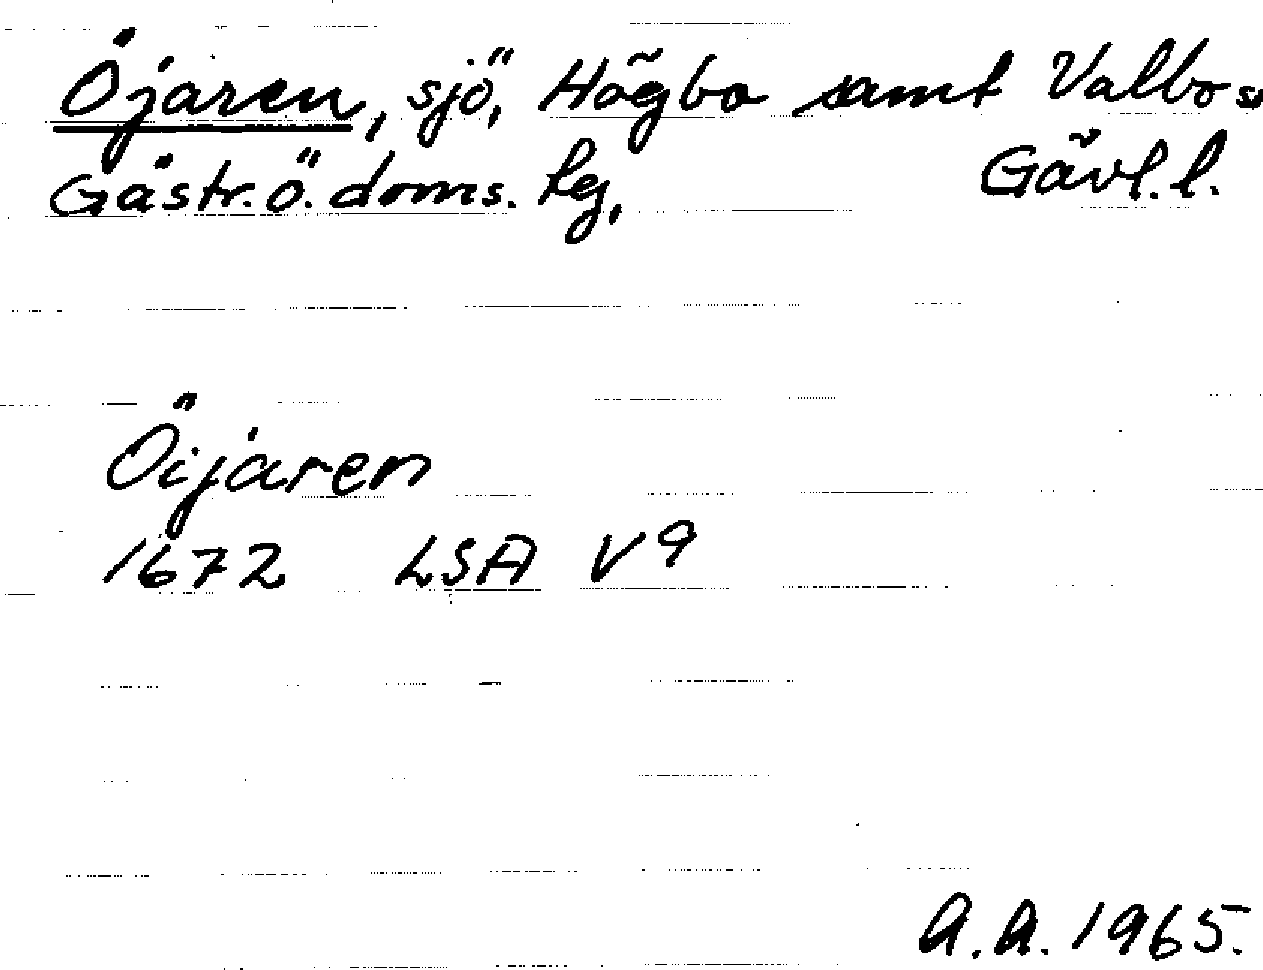 Öjaren, sjö, Högbo samt Valbo sn
Gästr. ö. doms. hg, Gävl. l.
Öijaren
1672 LSA V 9
A.A. 1965.